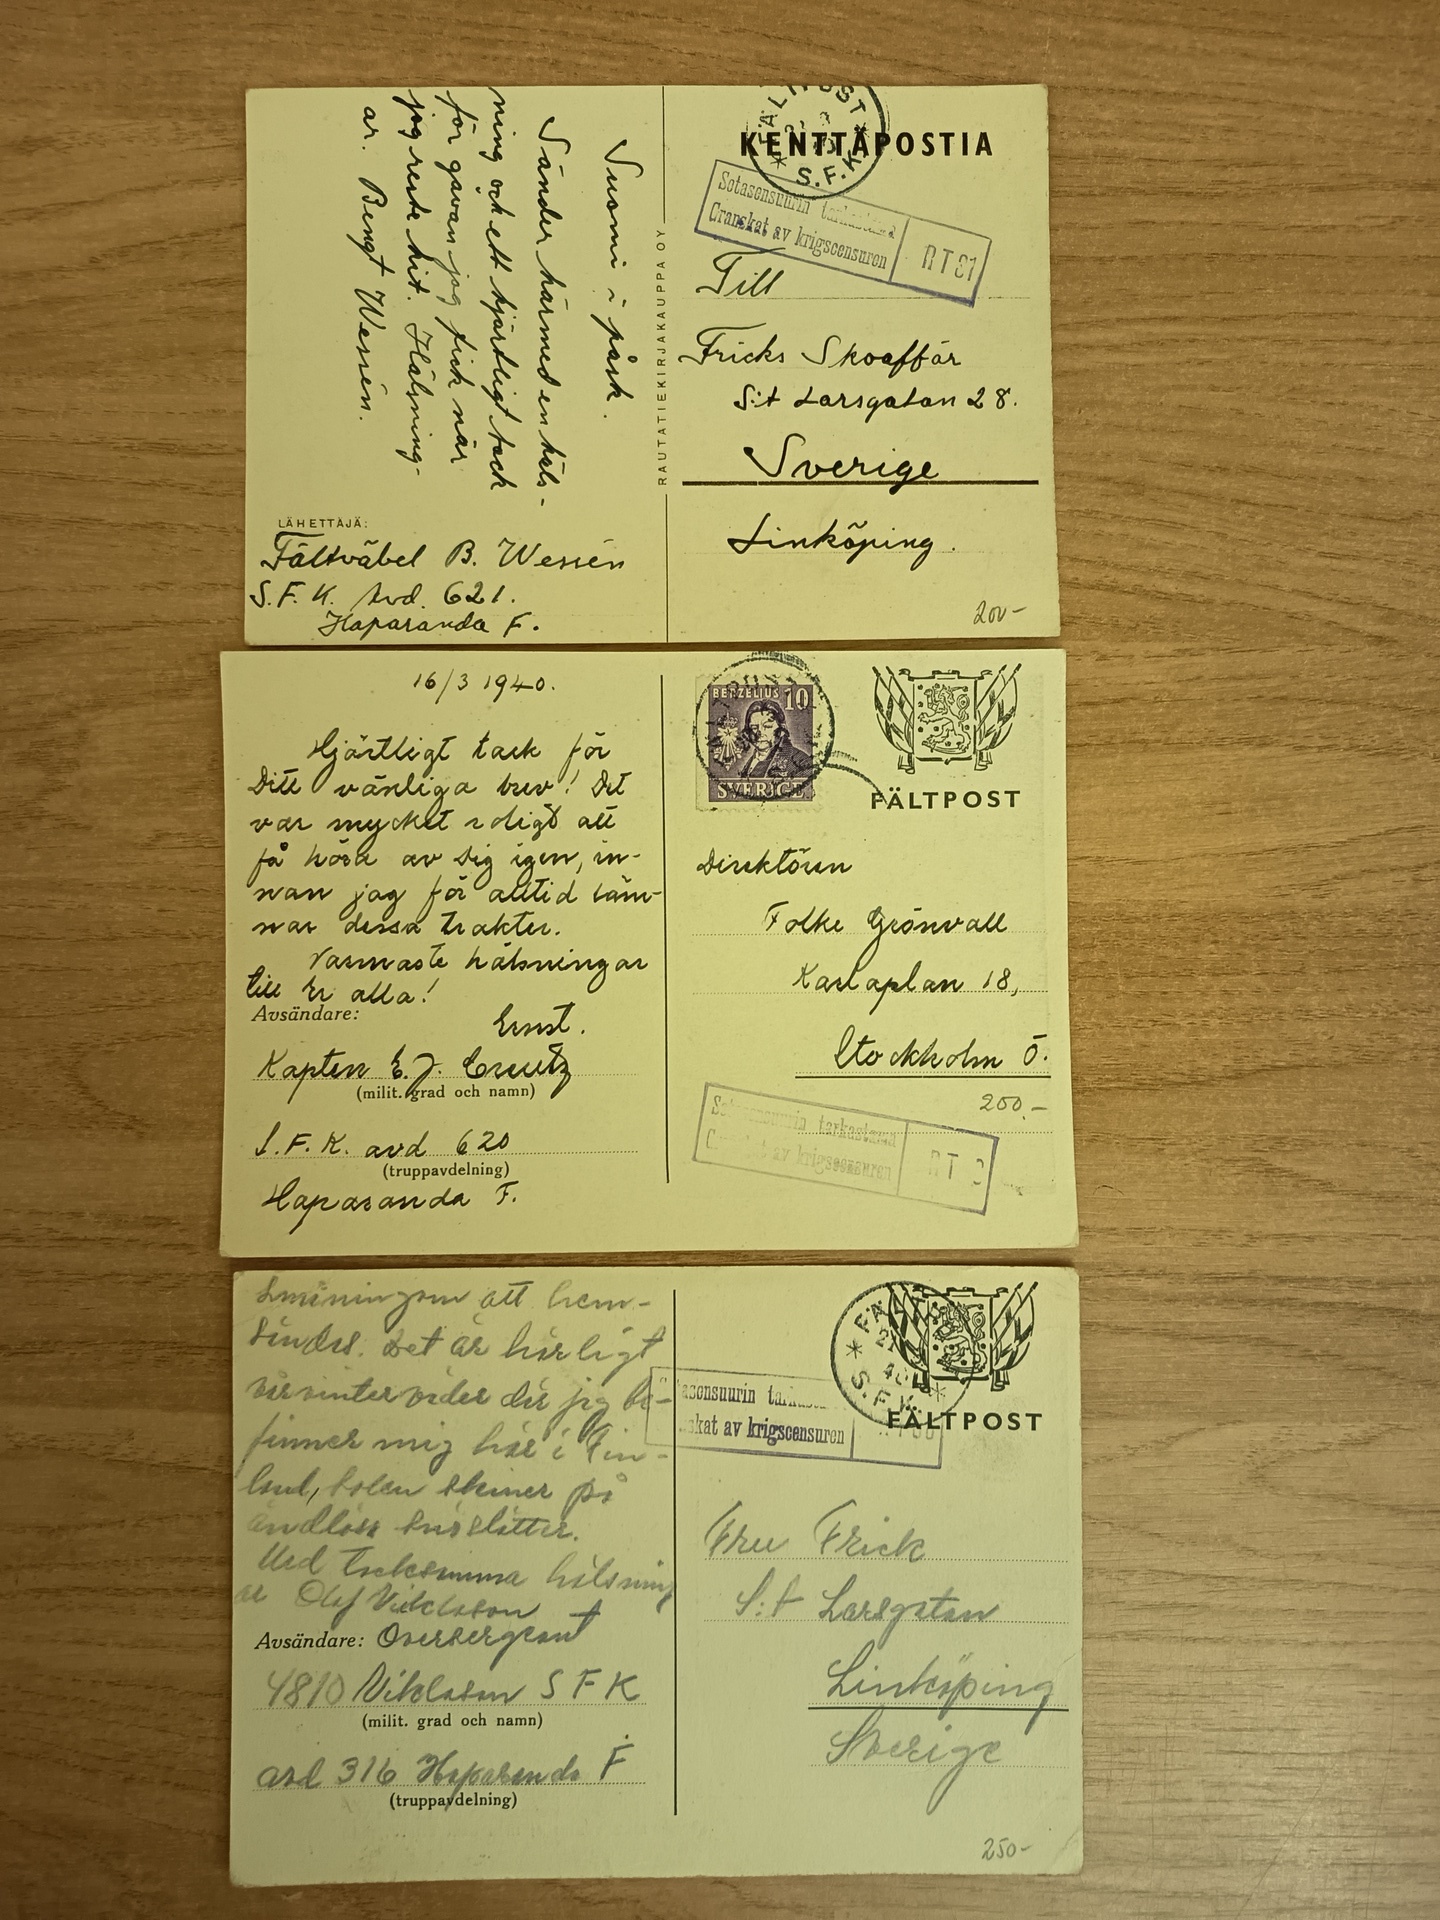 KENTTÄPOSTIA
FÄLTPOST
S.F.K.
Sotasensuurin tarkastama
Granskat av krigscensuren
RT 81
Till
Fricks Skoaffär
S:t Larsgatan 28.
Sverige
Linköping.
200-
RAUTATIEKIRJAKAUPPA OY
Suomi i påsk.
Sänder härmed en häls-
ning och ett hjärtligt tack
för gåvan jag fick när
jag reste hit. Hälsning-
ar. Bengt Wessén.
LÄHETTÄJÄ:
Fältväbel B. Wessén
S.F.K. Avd. 621.
Haparanda F.
16/3 1940.
Hjärtligt tack för
Ditt vänliga brev! Det
var mycket roligt att
få höra av Dig igen, in-
nan jag för alltid läm-
nar dessa trakter.
Varmaste hälsningar
till Er alla!
Ernst.
Avsändare:
Kapten E. J. Creutz
(milit. grad och namn)
S.F.K. avd 620
(truppavdelning)
Haparanda F.
BERZELIUS 10
SVERIGE
FÄLTPOST
Direktören
Folke Grönvall
Karlaplan 18,
Stockholm Ö.
200.-
Sotasensuurin tarkastama
Granskat av krigscensuren
RT
småningom att hem-
sändas. Det är härligt
vårvinterväder där jag be-
finner mig här i Fin-
land, solen skiner på
ändlösa snöslätter.
Med tacksamma hälsning
ar Olof Niklasson
Avsändare: Översergeant
4810 Niklasson S F K
(milit. grad och namn)
avd 316 Haparanda F
(truppavdelning)
FÄLTPOST
21
40
S.F.K.
FÄLTPOST
asensuurin
skat av krigscensuren
Fru Frick
S:t Larsgatan
Linköping
Sverige
250-